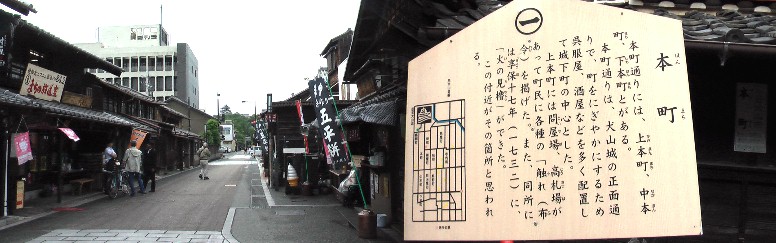 一
本町
ほん まち
本町通りには、上本町、中本
町、下本町とがある。
本町通りは、犬山城の正面通
りで、町をにぎやかにするため
呉服屋、酒屋などを多く配置し
て城下町の中心とした。
上本町には問屋場、高札場が
あって町民に各種の「触れ（布
令）を掲げた。また、同所に、
は享保十七年（一七三二）に、
「火の見櫓」ができた。
この付近がその箇所と思われ
る。
五平餅